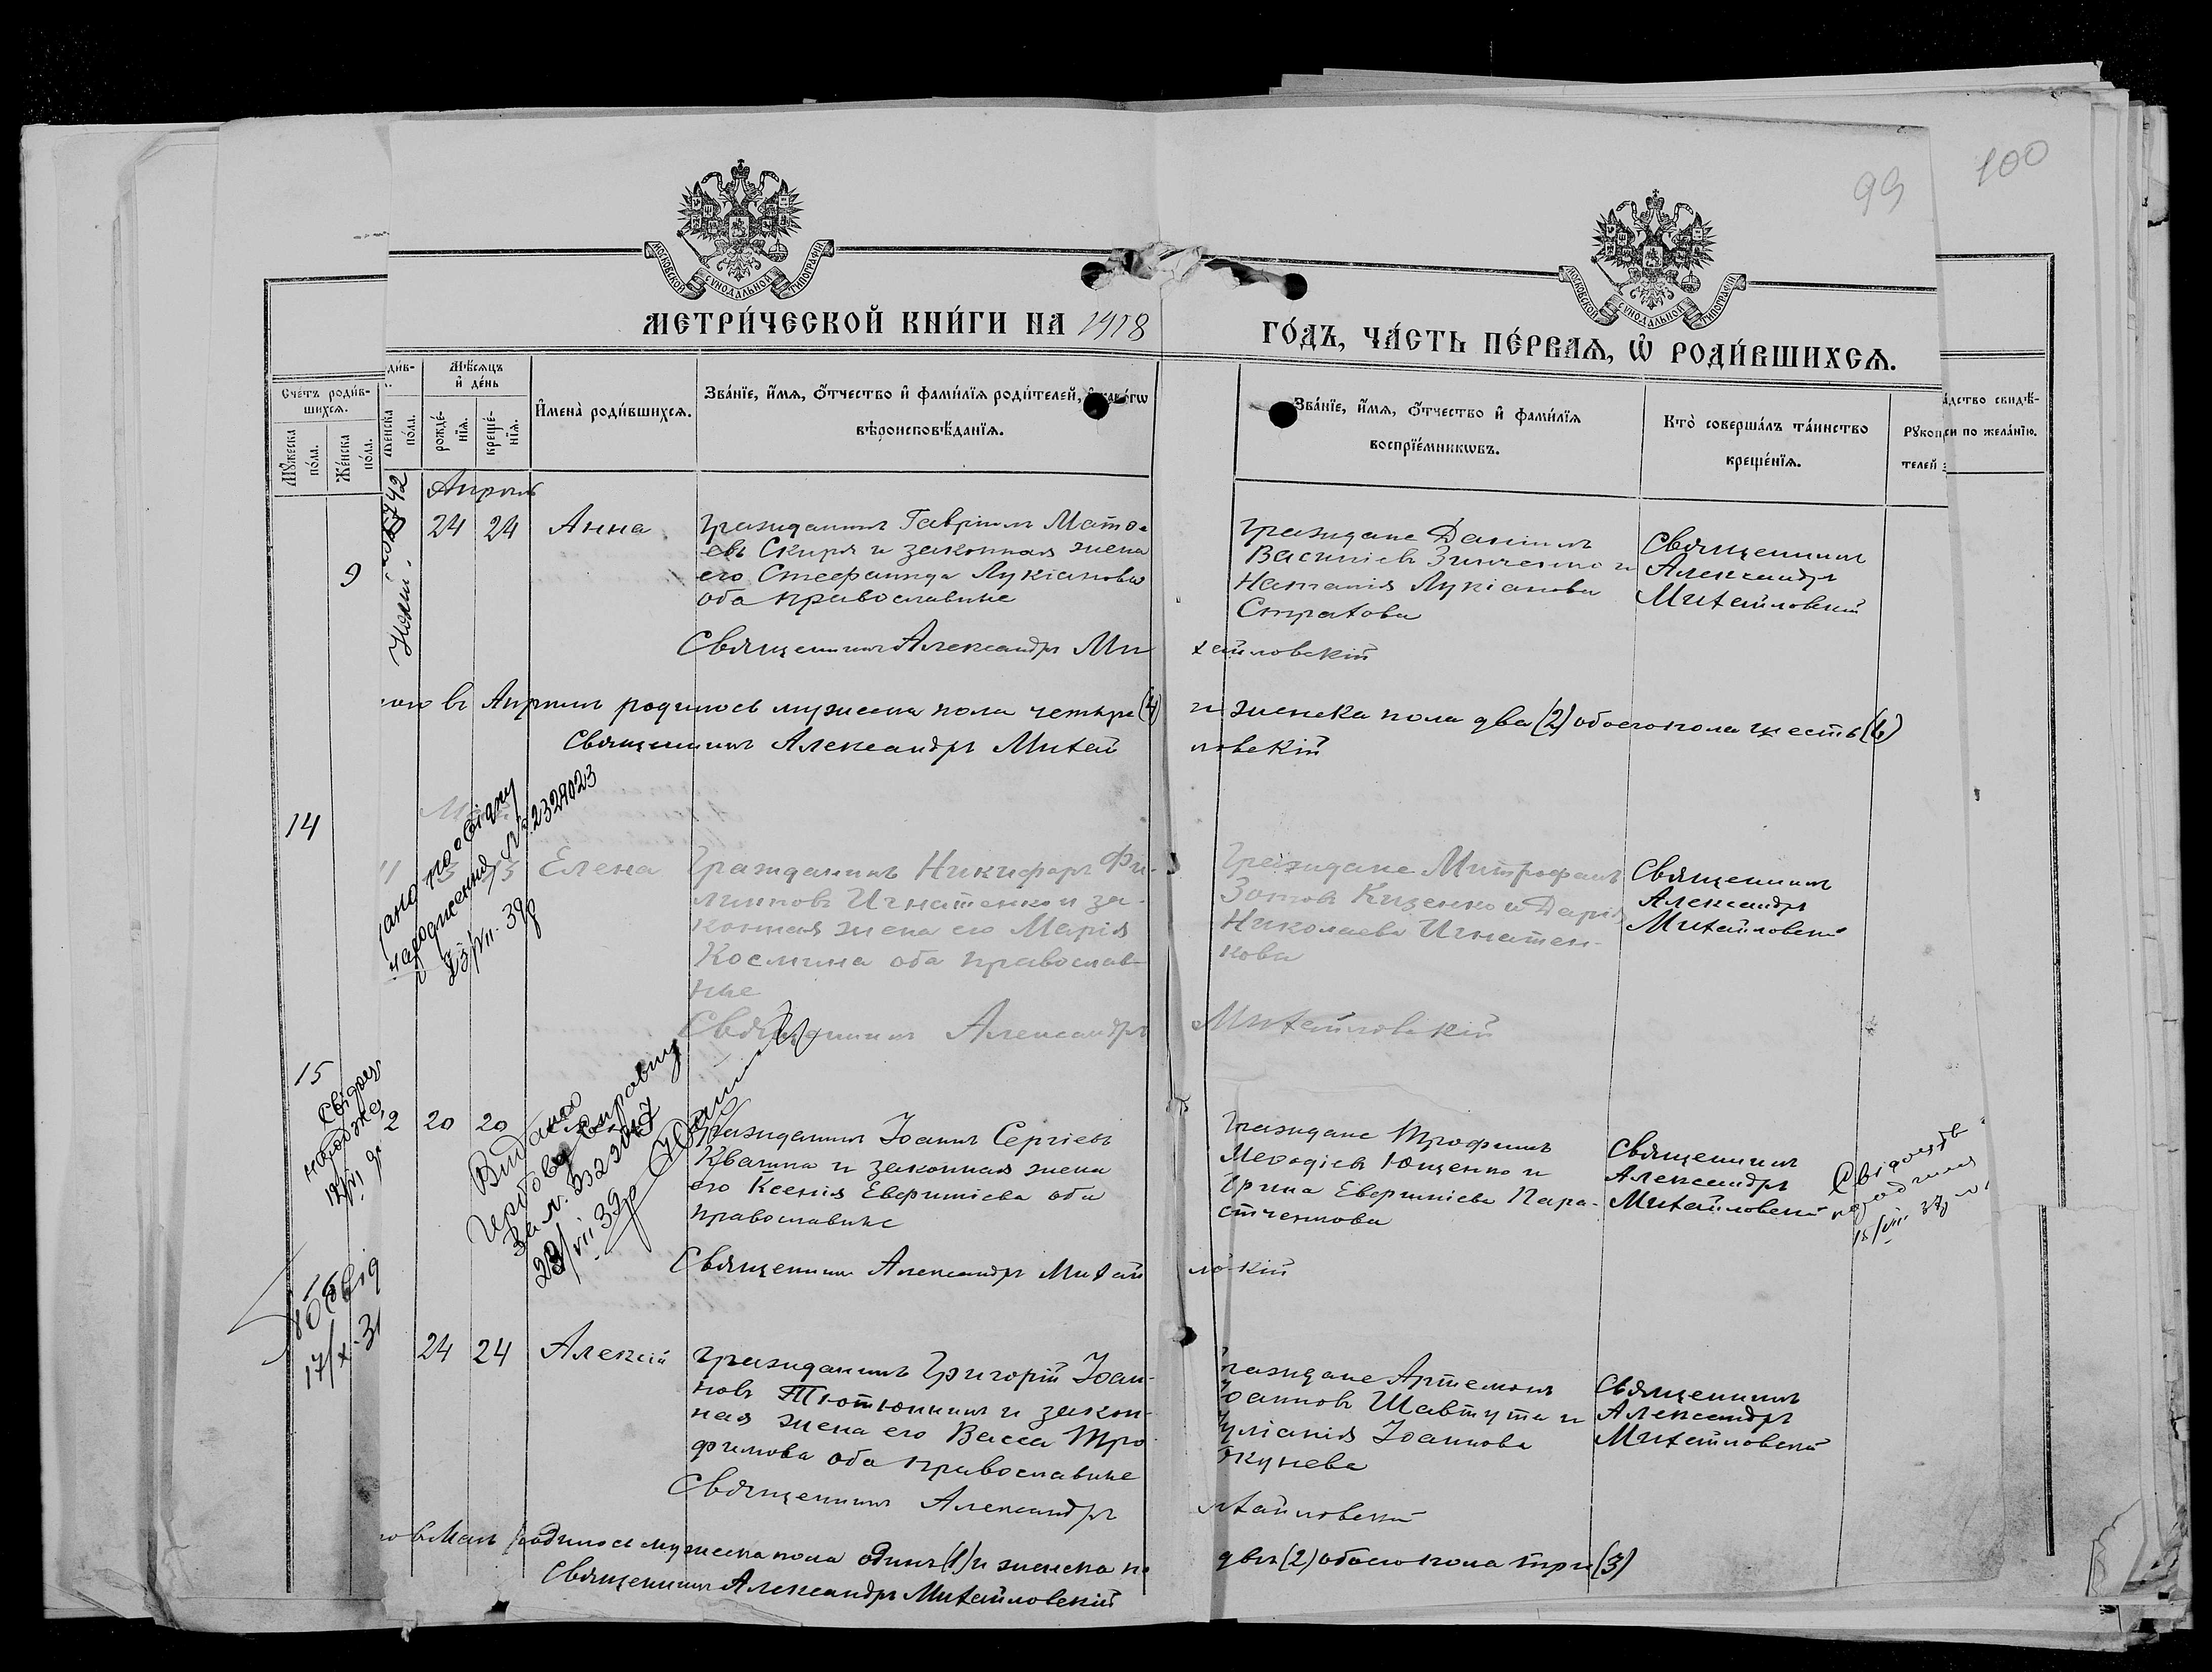 99
100
МОСКОВСКОЙ СѴНОДАЛЬНОЙ ТИПОГРАФІИ
МОСКОВСКОЙ СѴНОДАЛЬНОЙ ТИПОГРАФІИ
МЕТРИ́ЧЕСКОЙ КНИ́ГИ НА 1918
ГО́ДЪ, ЧА́СТЬ ПЕ́РВАЯ, Ѡ҆ РОДИ́ВШИХСЯ.
Счетъ роди́в-
шихся.
Мꙋ́жеска по́ла.
Же́нска по́ла.
Же́нска по́ла.
Мѣ́сяцъ и҆ де́нь
рожде́-нїя.
креще́-нїя.
И҆мена̀ роди́вшихся.
Зва́нїе, и҆́мя, ѻ҆́тчество и҆ фами́лїя роди́телей,
вѣроисповѣ́данїя.
Зва́нїе, и҆́мя, ѻ҆́тчество и҆ фами́лїя
воспрїе́мникѡвъ.
Кто̀ соверша́лъ та́инство
креще́нїя.
Апрель
9
24 24 Анна
Гражданинъ Гавріилъ Мато-
евъ Скиря и законная жена
его Стефанида Лукіанова
оба православные
Граждане Даніилъ
Василіевъ Зинченко и
Наталія Лукіанова
Стратова
Священникъ
Александръ
Михайловскій
Священникъ Александръ Ми
хайловскій
въ Апрелѣ родилось мужеска пола четыре (4)
и женска пола два (2) обоего пола шесть (6)
Священникъ Александръ Михай
ловскій
14
№ 2329023
23/VII-39р
Елена
Гражданинъ Никифоръ Фи-
липповъ Игнатенко и за-
конная жена его Марія
Космина оба православ-
ные
Граждане Митрофанъ
Зотовъ Кизенко и Дарія
Николаева Игнатен-
кова
Священникъ
Александръ
Михайловскій
Священникъ Александръ
Михайловскій
15
2 20 20
Видано
23/VII 39р
Гражданинъ Іоаннъ Сергіевъ
Квашна и законная жена
его Ксенія Евфиміева оба
православные
Граждане Трофимъ
Меѳодіевъ Ющенко и
Ирина Евфиміева Пара-
стченкова
Священникъ
Александръ
Михайловскій
Священникъ Александръ Михай
24 24 Алексій
Гражданинъ Григорій Іоан-
новъ Тютюнникъ и закон-
ная жена его Васса Тро-
фимова оба православные
Граждане Артемонъ
Іоанновъ Шавтута и
Іуліанія Іоаннова
Окунева
Священникъ
Александръ
Михайловскій
Священникъ Александръ
Михайловскій
въ Маѣ родилось мужеска пола одинъ (1) и женска по
двѣ (2) обоего пола три (3)
Священникъ Александръ Михайловскій